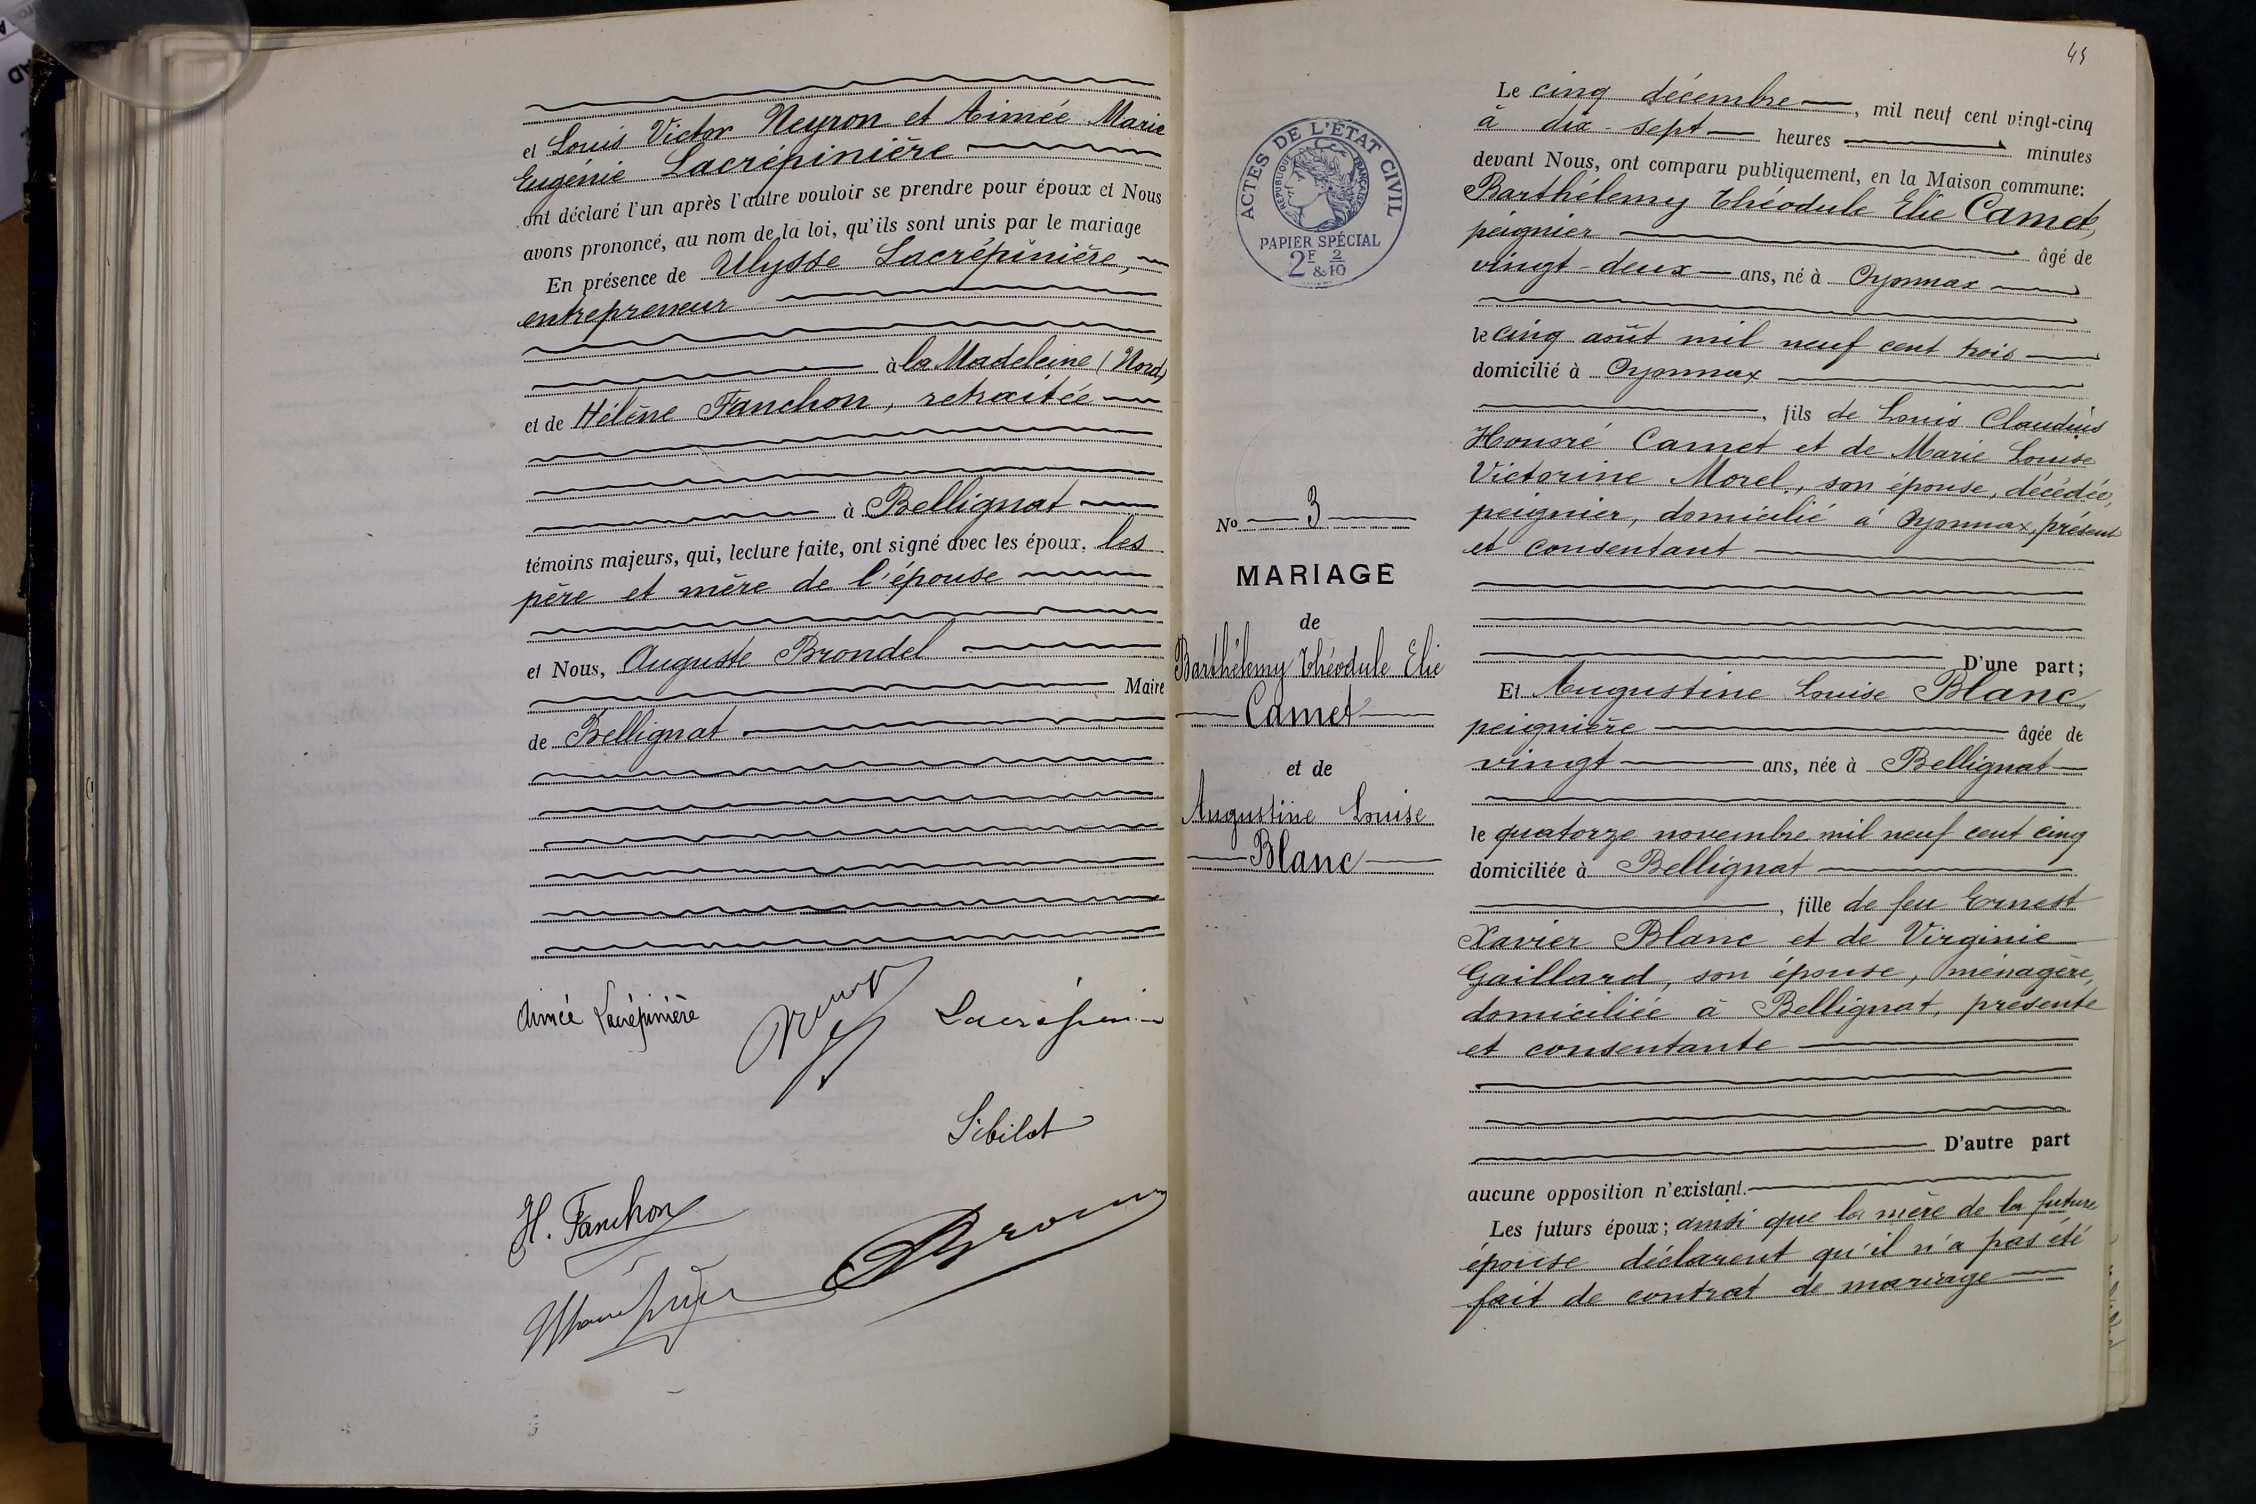 et Louis Victor Neyron et Aimée Marie
Eugénie Lacrépinière
ont déclaré l'un après l'autre vouloir se prendre pour époux et Nous
avons prononcé, au nom de la loi, qu'ils sont unis par le mariage
En présence de Ulysse Lacrépinière,
entrepreneur
à la Madeleine (Nord)
et de Hélène Fanchon, retraitée
à Bellignat
témoins majeurs, qui, lecture faite, ont signé avec les époux, les
père et mère de l'épouse
et Nous, Auguste Brondel
Maire
de Bellignat
Aimée Lacrépinière
Sibilat
H. Fanchon
45
ACTES DE L'ÉTAT CIVIL
RÉPUBLIQUE FRANÇAISE
PAPIER SPÉCIAL
2F & 2/10
No 3
MARIAGE
de
Barthélemy Théodule Elie
Camet
et de
Augustine Louise
Blanc
Le cinq décembre, mil neuf cent vingt-cinq
à dix-sept heures minutes
devant Nous, ont comparu publiquement, en la Maison commune:
Barthélemy Théodule Elie Camet,
peignier âgé de
vingt-deux ans, né à Oyonnax
le cinq août mil neuf cent trois
domicilié à Oyonnax
, fils de Louis Claudius
Honoré Camet et de Marie Louise
Victorine Morel, son épouse, décédée,
peignier, domicilié à Oyonnax, présent
et consentant
D'une part;
Et Augustine Louise Blanc,
peignière âgée de
vingt ans, née à Bellignat
le quatorze novembre mil neuf cent cinq
domiciliée à Bellignat
, fille de feu Ernest
Xavier Blanc et de Virginie
Gaillard, son épouse, ménagère,
domiciliée à Bellignat, présente
et consentante
D'autre part
aucune opposition n'existant.
Les futurs époux; ainsi que la mère de la future
épouse déclarent qu'il n'a pas été
fait de contrat de mariage